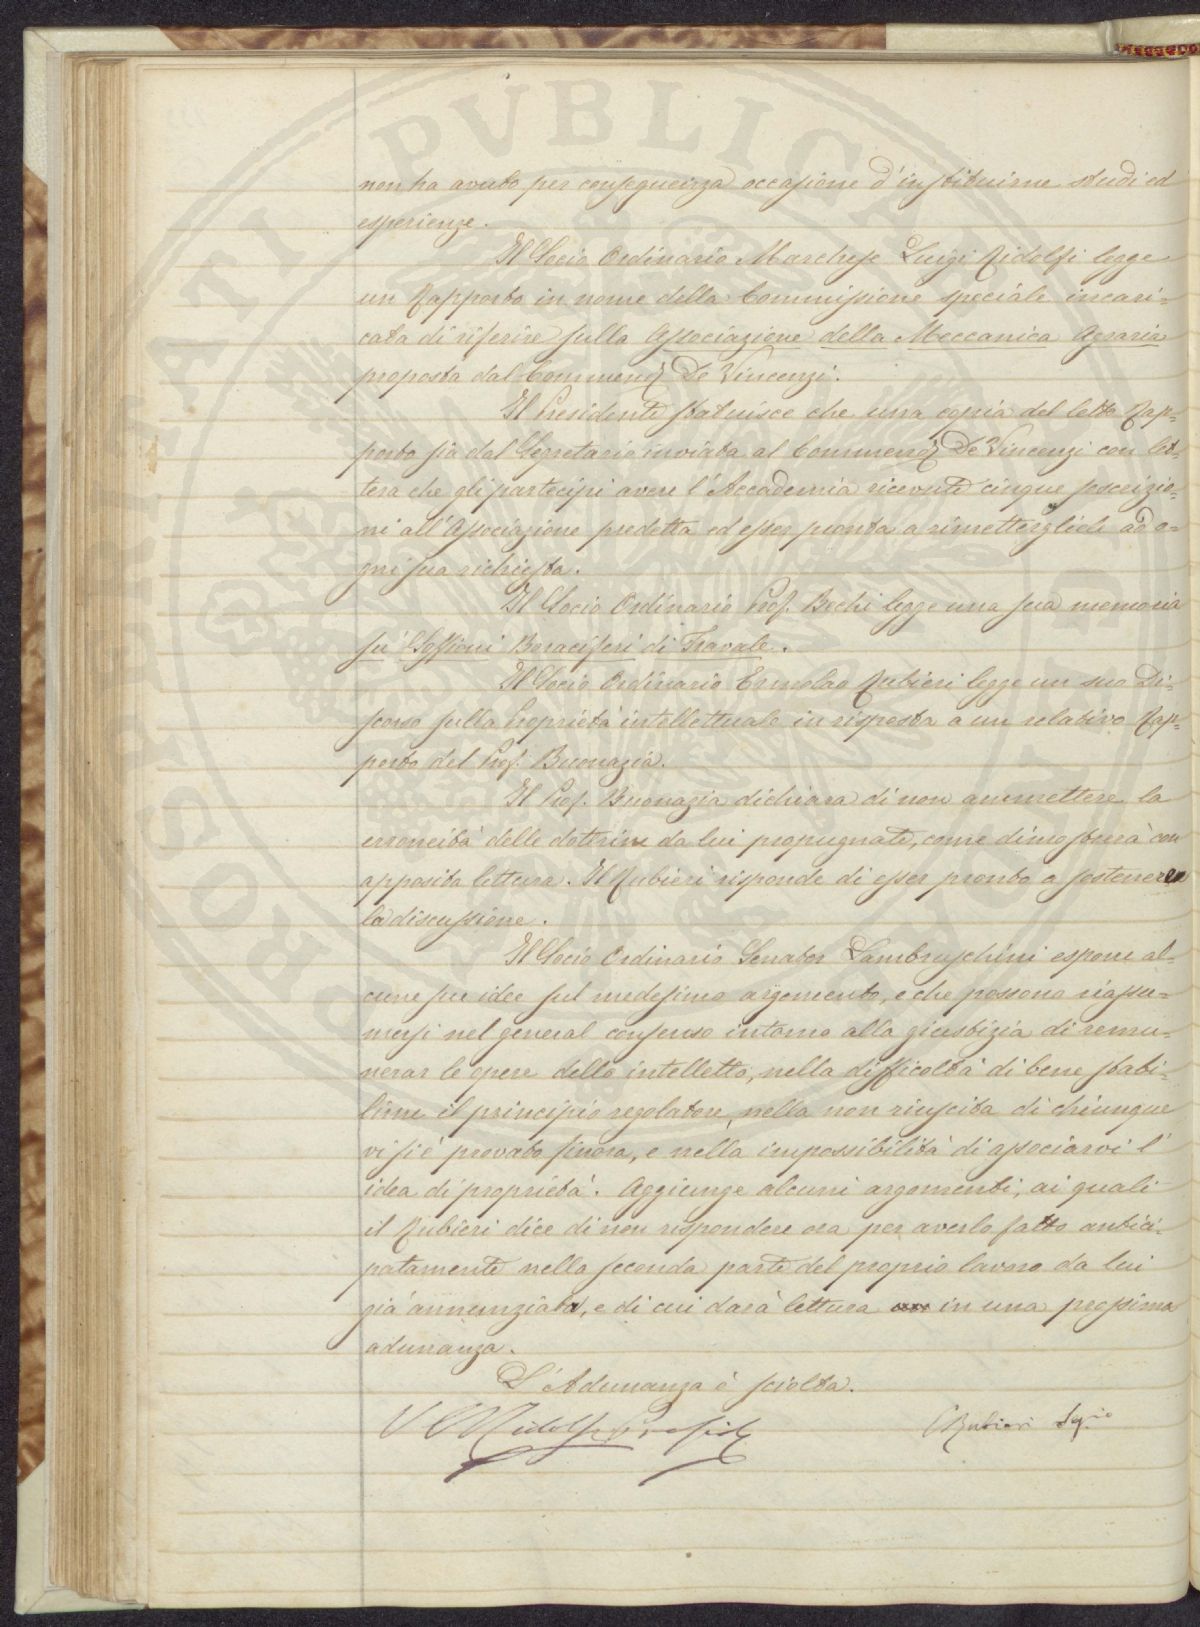 non ha avuto per conseguenza occasione d'instituirne studi ed
esperienze.
Il Socio Ordinario Marchese Luigi Ridolfi legge
un Rapporto in nome della Commissione speciale incari=
cata di riferire sulla Associazione della Meccanica Agraria
proposta dal Commend. De Vincenzi.
Il Presidente statuisce che una copia del letto Rap=
porto sia dal Segretario inviata al Commend. De Vincenzi con let=
tera che gli partecipi avere l'Accademia ricevute cinque soscrizio=
ni all'Associazione predetta ed esser pronta a rimettergliele ad o=
gni sua richiesta.
Il Socio Ordinario Prof. Bechi legge una sua memoria
su' Soffioni Boraciferi di Travale.
Il Socio Ordinario Ermolao Rubieri legge un suo Di=
scorso sulla Proprietà intellettuale in risposta a un relativo Rap=
porto del Prof. Buonazia.
Il Prof. Buonazia dichiara di non ammettere la
erroneità delle dottrine da lui propugnate, come dimostrerà con
apposita lettura. Il Rubieri risponde di esser pronto a sostenere
la discussione.
Il Socio Ordinario Senator Lambruschini espone al=
cune sue idee sul medesimo argomento, e che possono riassu=
mersi nel general consenso intorno alla giustizia di remu=
nerar le opere dello intelletto, nella difficoltà di bene stabi=
lirne il principio regolatore, nella non riuscita di chiunque
vi si è provato finora, e nella impossibilità di associarvi l'
idea di proprietà. Aggiunge alcuni argomenti, ai quali
il Rubieri dice di non rispondere ora per averlo fatto antici=
patamente nella seconda parte del proprio lavoro da lui
già annunziata, e di cui darà lettura in una prossima
adunanza.
L'Adunanza è sciolta.
Ridolfi Presid.
E Rubieri Seg.rio
PROSPERITATI PUBLICAE